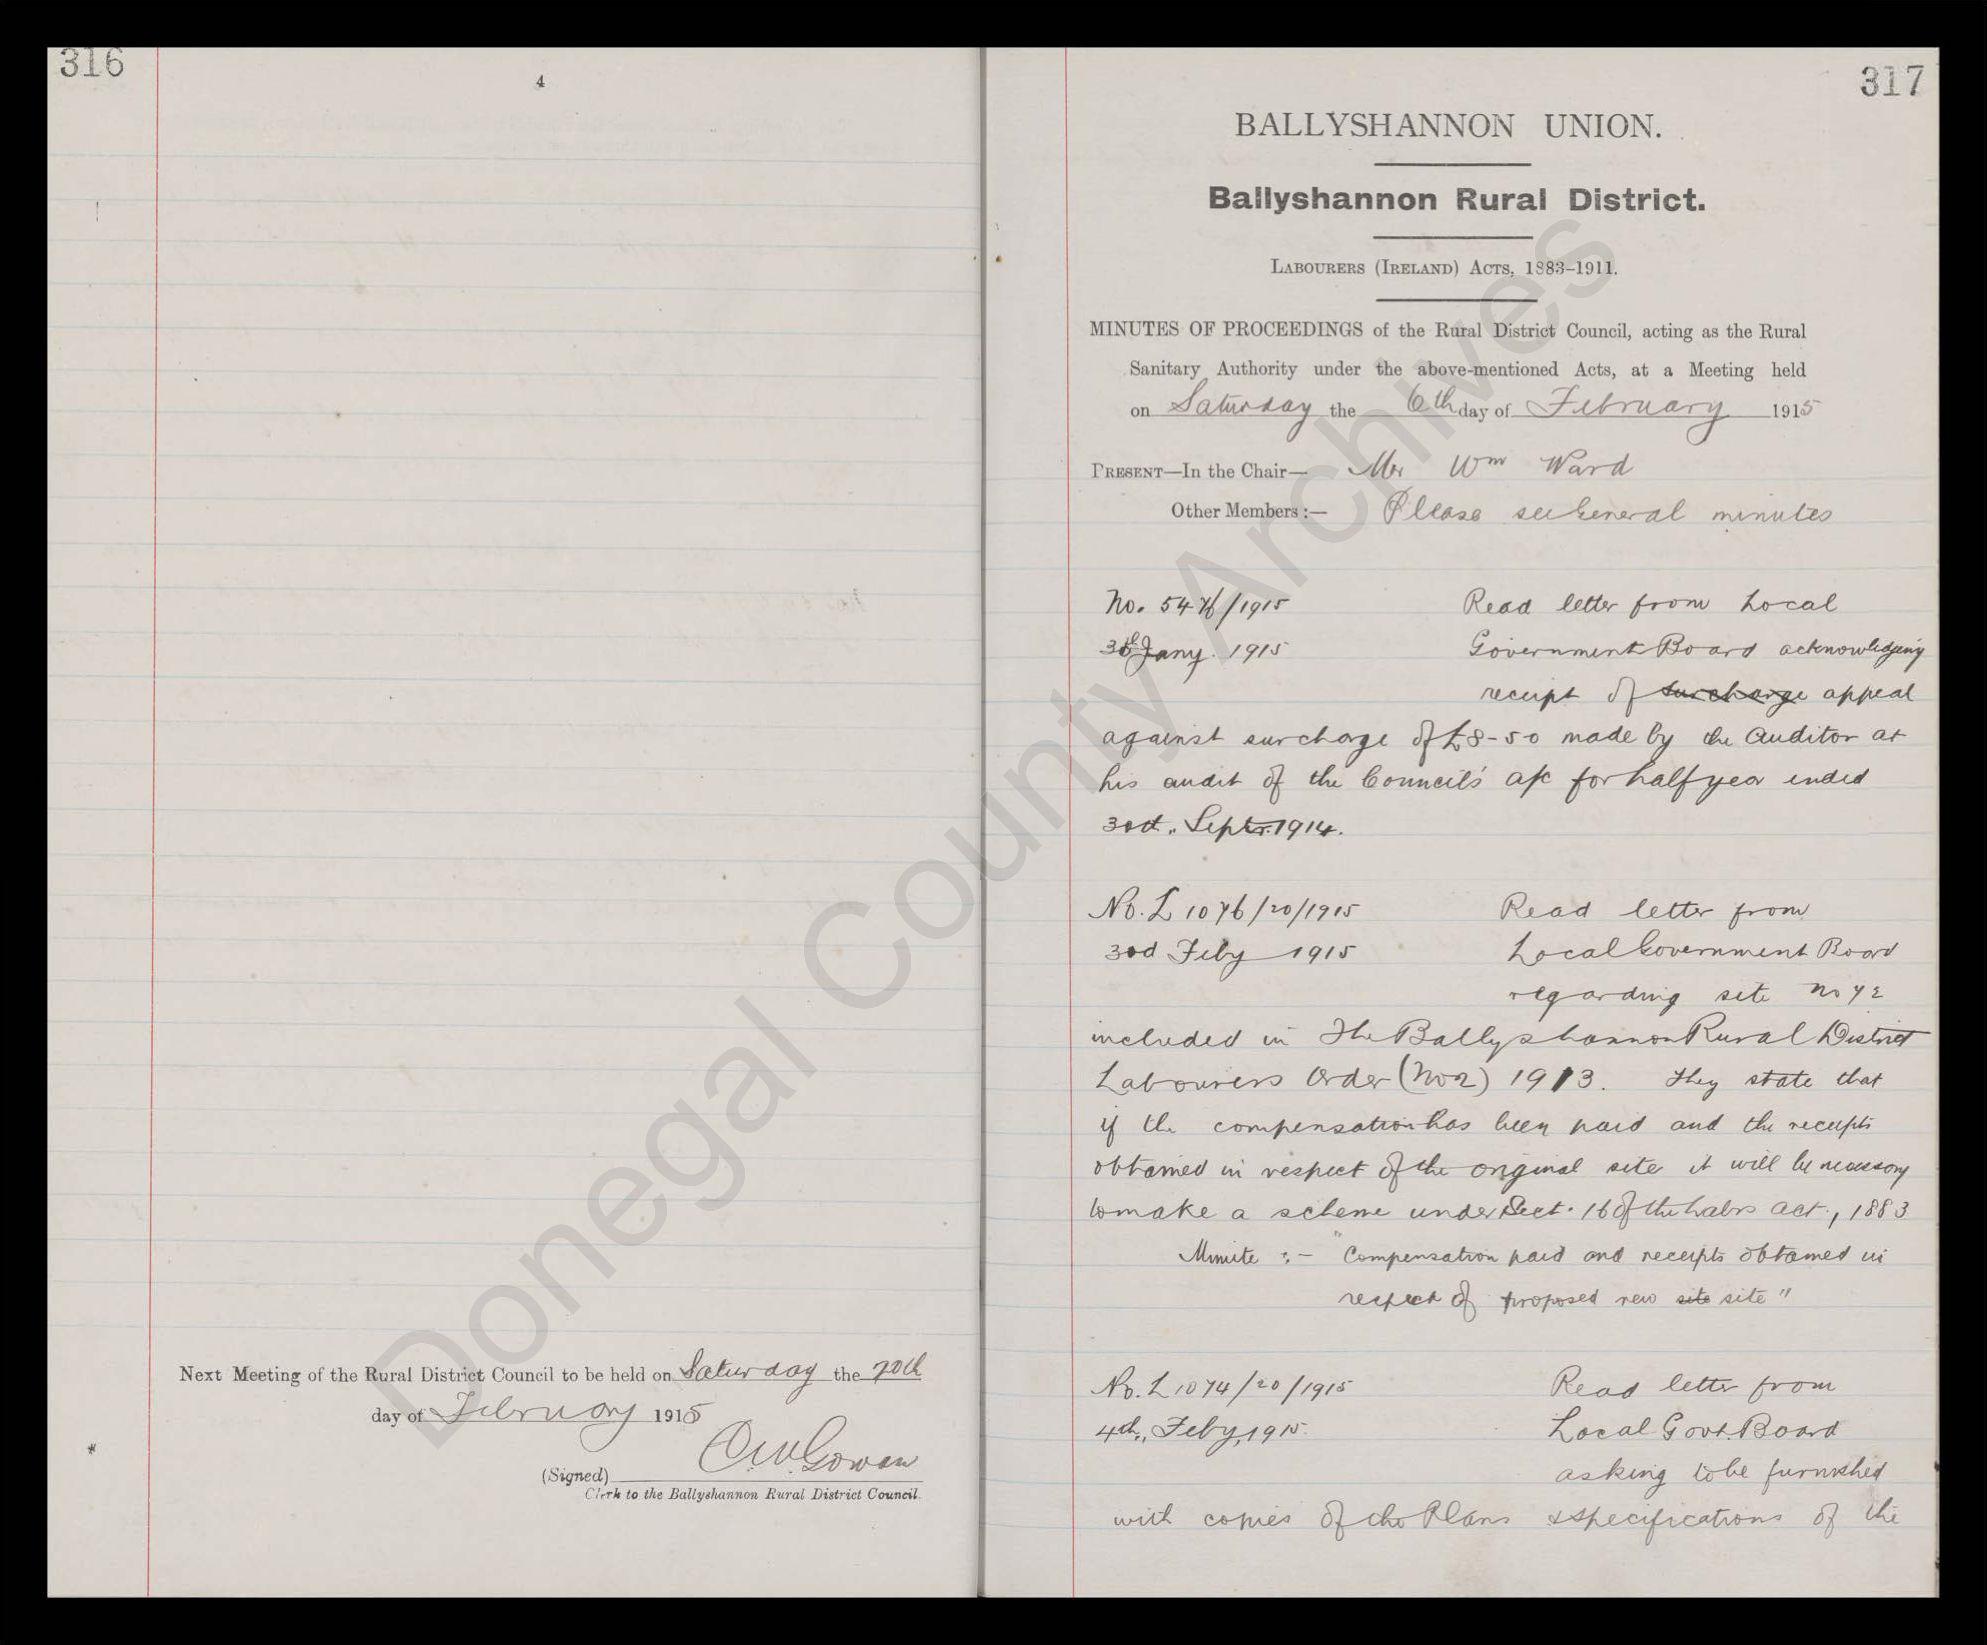 316
4
Next Meeting of the Rural District Council to be held on Saturday the 20th
day of February 1915
(Signed)
Clerk to the Ballyshannon Rural District Council.
317
BALLYSHANNON UNION.
Ballyshannon Rural District.
LABOURERS (IRELAND) ACTS, 1883–1911.
MINUTES OF PROCEEDINGS of the Rural District Council, acting as the Rural
Sanitary Authority under the above-mentioned Acts, at a Meeting held
on Saturday the 6th day of February 1915
PRESENT—In the Chair— Mr Wm Ward
Other Members :— Please see General minutes
No. 5476/1915 Read letter from Local
30th Jany. 1915 Government Board acknowledging
receipt of surcharge appeal
against surcharge of £8-5-0 made by the Auditor at
his audit of the Council's a/c for half year ended
30th. Septr. 1914.
No. L 1076/20/1915 Read letter from
3rd Feby 1915 Local Government Board
regarding site No 72
included in The Ballyshannon Rural District
Labourers Order (No 2) 1913. They state that
if the compensation has been paid and the receipts
obtained in respect of the original site it will be necessary
to make a scheme under Sect. 16 of the Labrs Act, 1883
Minute :- "Compensation paid and receipts obtained in
respect of proposed new site site"
No. L 1074/20/1915 Read letter from
4th, Feby, 1915. Local Govt. Board
asking to be furnished
with copies of the Plans & specifications of the
Donegal County Archives